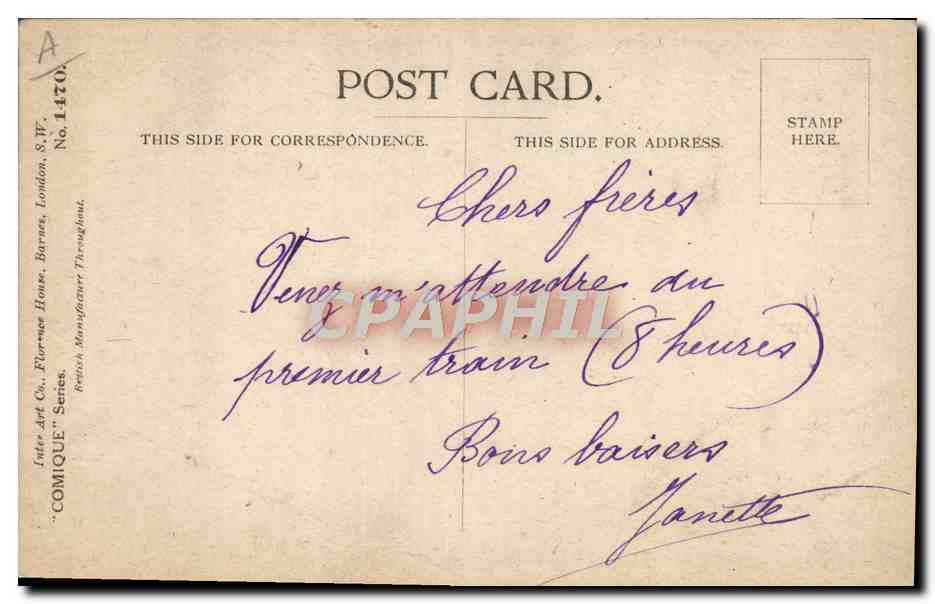 A
POST CARD.
THIS SIDE FOR CORRESPONDENCE.
THIS SIDE FOR ADDRESS.
STAMP
HERE.
Chers frères
Venez m'attendre du
premier train (8 heures)
Bons baisers
Janette
CPAPHIL
Inter Art Co., Florence House, Barnes, London, S.W.
"COMIQUE" Series. No. 1470.
British Manufacture Throughout.